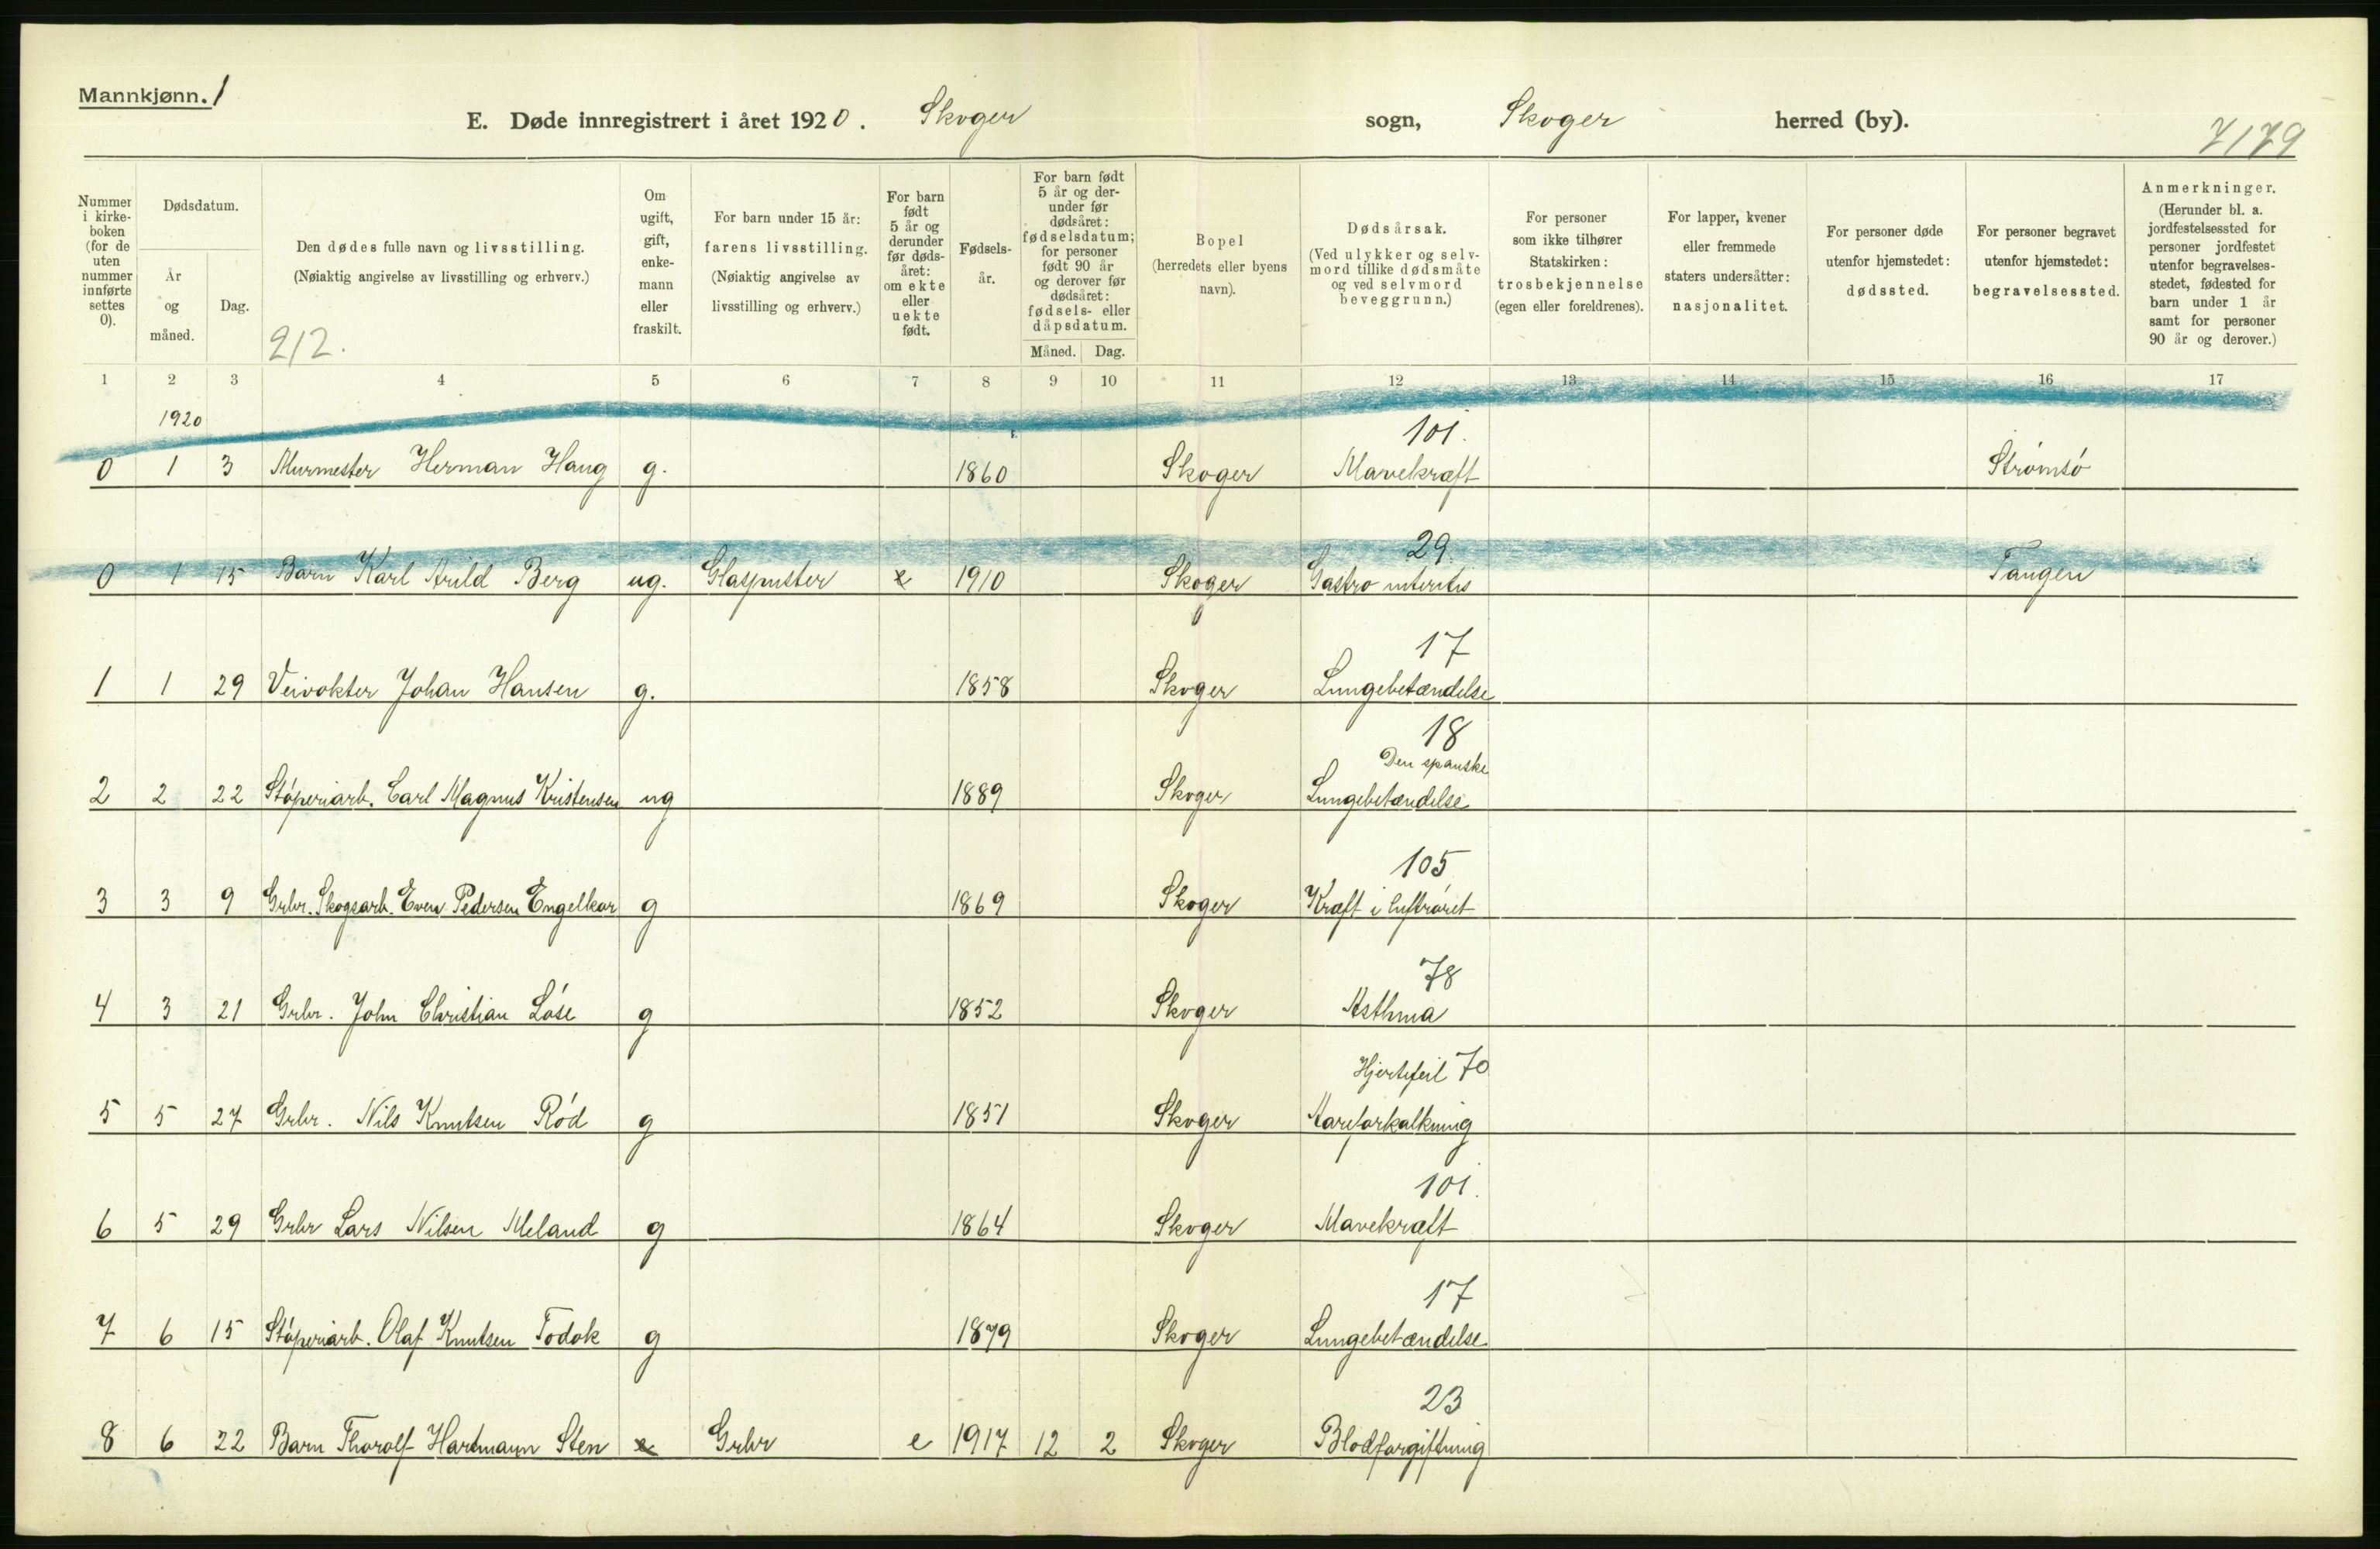 Mannkjønn. 1
E. Døde innregistrert i året 1920. Skoger sogn, Skoger herred (by).
7179
Nummer i kirke-boken (for de uten nummer innførte settes 0).
Dødsdatum.
År og måned.
Dag.
Den dødes fulle navn og livsstilling.
(Nøiaktig angivelse av livsstilling og erhverv.)
212.
Om ugift, gift, enke-mann eller fraskilt.
For barn under 15 år: farens livsstilling.
(Nøiaktig angivelse av livsstilling og erhverv.)
For barn født 5 år og derunder før døds-året: om ekte eller uekte født.
Fødsels-år.
For barn født 5 år og der-under før dødsåret: fødselsdatum; for personer født 90 år og derover før dødsåret: fødsels- eller dåpsdatum.
Måned. Dag.
Bopel (herredets eller byens navn).
Dødsårsak.
(Ved ulykker og selv-mord tillike dødsmåte og ved selvmord beveggrunn.)
For personer som ikke tilhører Statskirken: trosbekjennelse (egen eller foreldrenes).
For lapper, kvener eller fremmede staters undersåtter: nasjonalitet.
For personer døde utenfor hjemstedet: dødssted.
For personer begravet utenfor hjemstedet: begravelsessted.
Anmerkninger.
(Herunder bl. a. jordfestelsessted for personer jordfestet utenfor begravelses-stedet, fødested for barn under 1 år samt for personer 90 år og derover.)
1 2 3 4 5 6 7 8 9 10 11 12 13 14 15 16 17
1920
101.
0 1 3 Murmester Herman Haug g. 1860 Skoger Mavekræft Strømsó
29.
0 1 15 Barn Karl Arild Berg ug. Glaspuster e 1910 Skoger Gastro interitis Tangen
17
1 1 29 Veivokter Johan Hansen g. 1858 Skoger Lungebetændelse
18
Den spanske
2 2 22 Stóperiarb. Carl Magnus Kristensen ug 1889 Skoger Lungebetændelse
105
3 3 9 Grbr. Skogsarb. Even Pedersen Engelkor g 1869 Skoger Kræft i luftróret
78
4 3 21 Grbr. John Christian Lóse g 1852 Skoger Asthma
Hjertefeil 70
5 5 27 Grbr. Nils Knutsen Ród g 1851 Skoger Aareforkalkning
101.
6 5 29 Grbr Lars Nilsen Meland g 1864 Skoger Mavekræft
17
7 6 15 Stóperiarb. Olaf Knutsen Todok g 1879 Skoger Lungebetændelse
23
8 6 22 Barn Thorolf Hartmann Sten e Grbr e 1917 12 2 Skoger Blodforgiftning